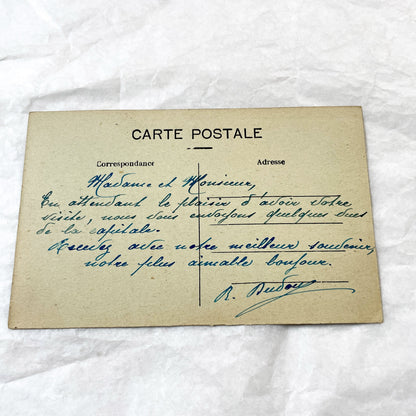 CARTE POSTALE
Correspondance
Adresse
Madame et Monsieur,
En attendant le plaisir d'avoir votre
visite, nous vous envoyons quelques vues
de la capitale.
Recevez avec notre meilleur souvenir,
notre plus aimable bonjour.
R.